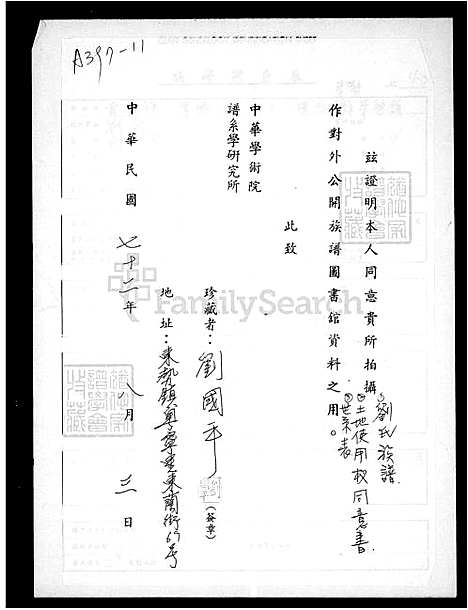 A397-11
玆證明本人同意貴所拍攝
①劉氏族譜
②土地使用权同意書
③世系表
作對外公開族譜圖書館資料之用。
此致
中華學術院
譜系學研究所
珍藏者：劉國平（簽章）
地址：東勢鎮粵寧里東蘭街67号
中華民國七十二年八月三日
FamilySearch